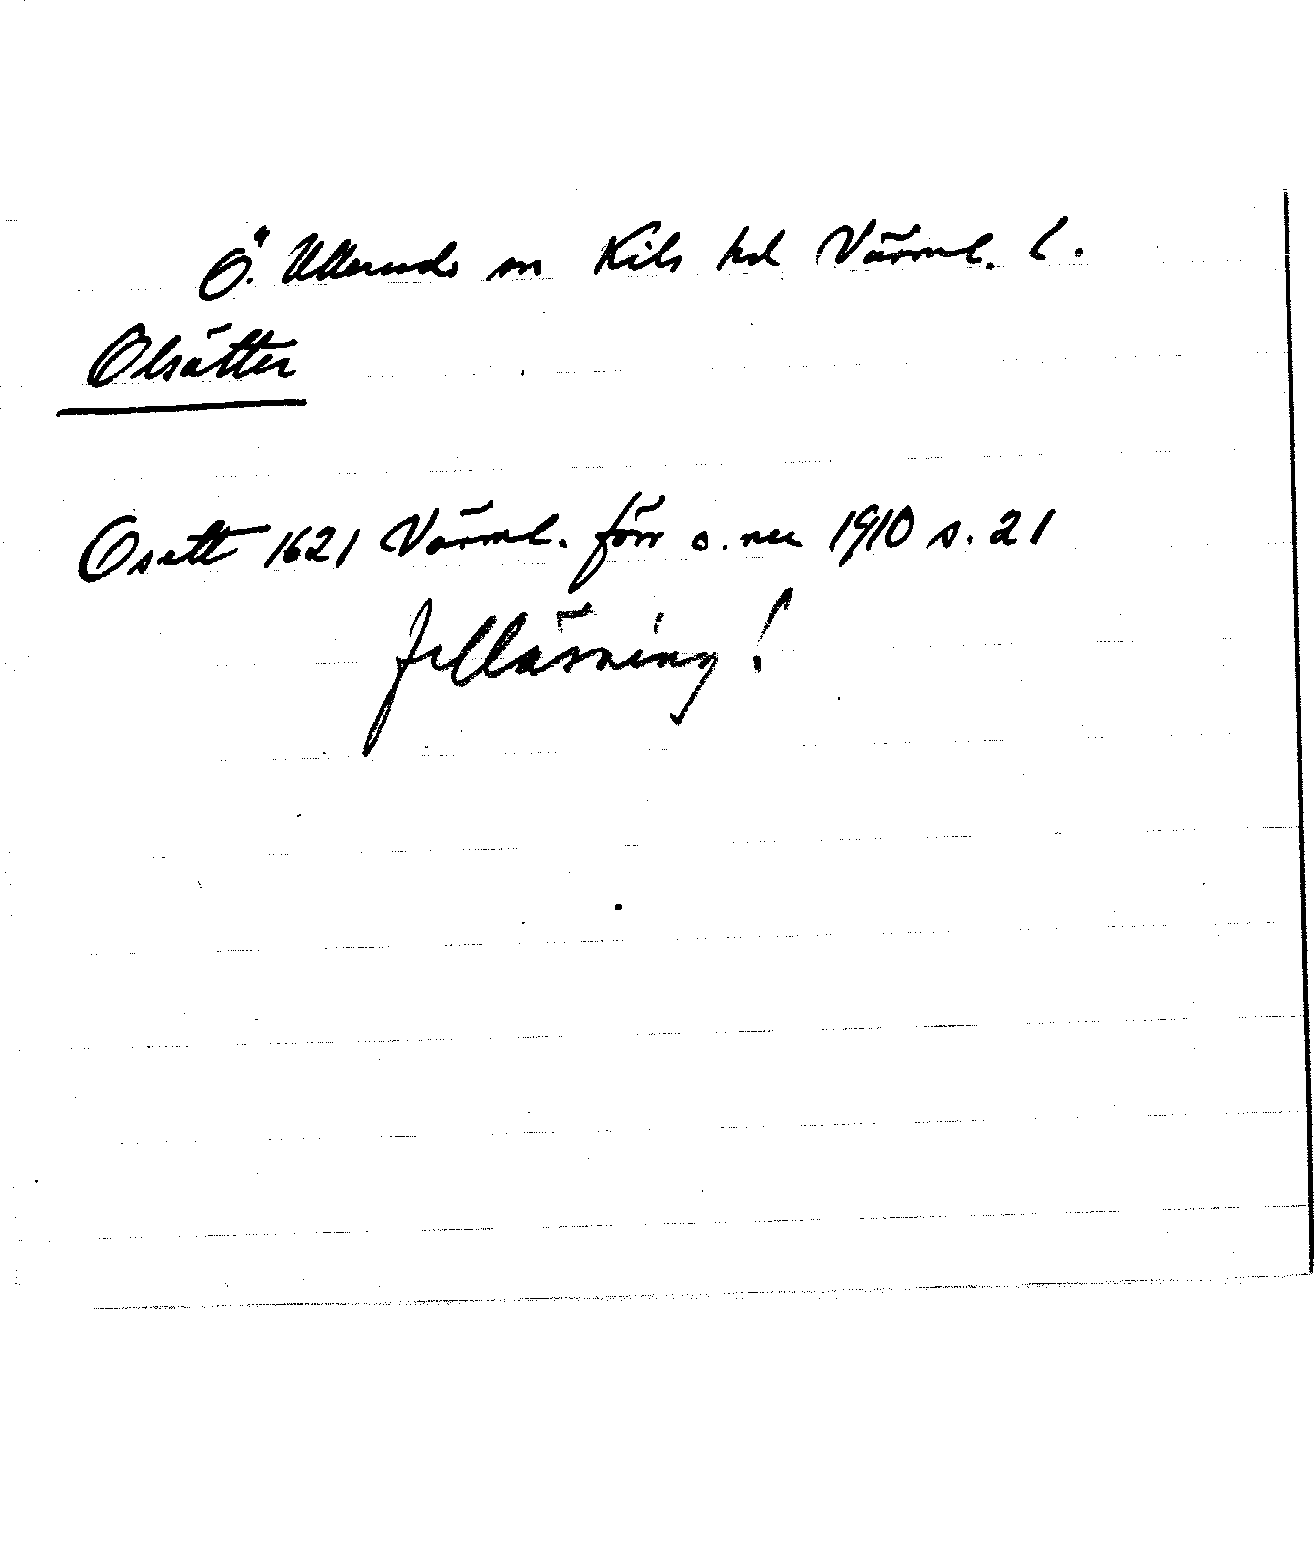 Ö. Ulleruds sn Kils hd Värml. l.
Olsätter
Osätt 1621 Värml. förr o. nu 1910 s. 21
felläsning!